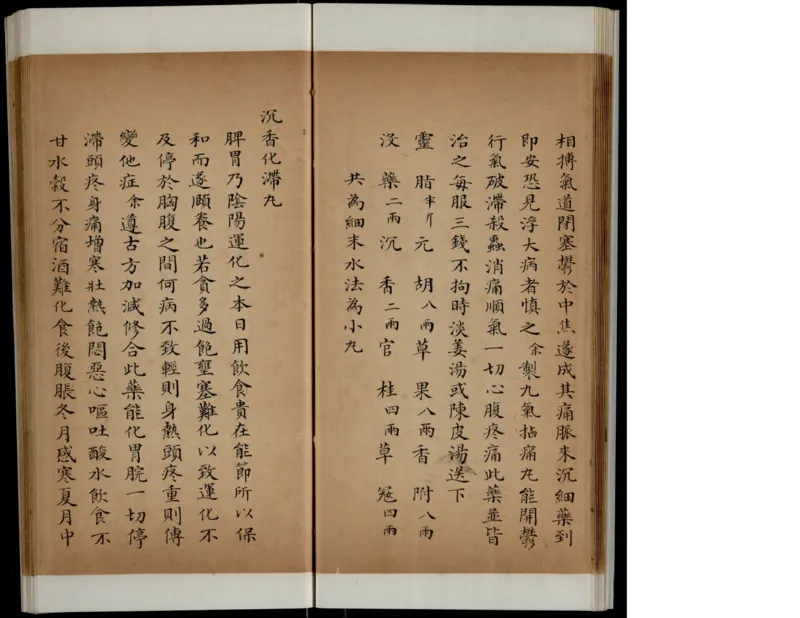 相搏氣道閉塞鬱於中焦遂成其痛脈來沉細藥到
即安恐見浮大病者慎之余製九氣拈痛丸能開鬱
行氣破滯殺蟲消痛順氣一切心腹疼痛此藥並皆
治之每服三錢不拘時淡姜湯或陳皮湯送下
靈脂半斤元胡八兩草果八兩香附八兩
沒藥二兩沉香二兩官桂四兩草蔻四兩
共為細末水法為小丸
沉香化滯丸
脾胃乃陰陽運化之本日用飲食貴在能節所以保
和而遂頤養也若貪多過飽壅塞難化以致運化不
及停於胸腹之間何病不致輕則身熱頭疼重則傳
變他症余遵古方加減修合此藥能化胃脘一切停
滯頭疼身痛增寒壯熱飽悶惡心嘔吐酸水飲食不
甘水穀不分宿酒難化食後腹脹冬月感寒夏月中